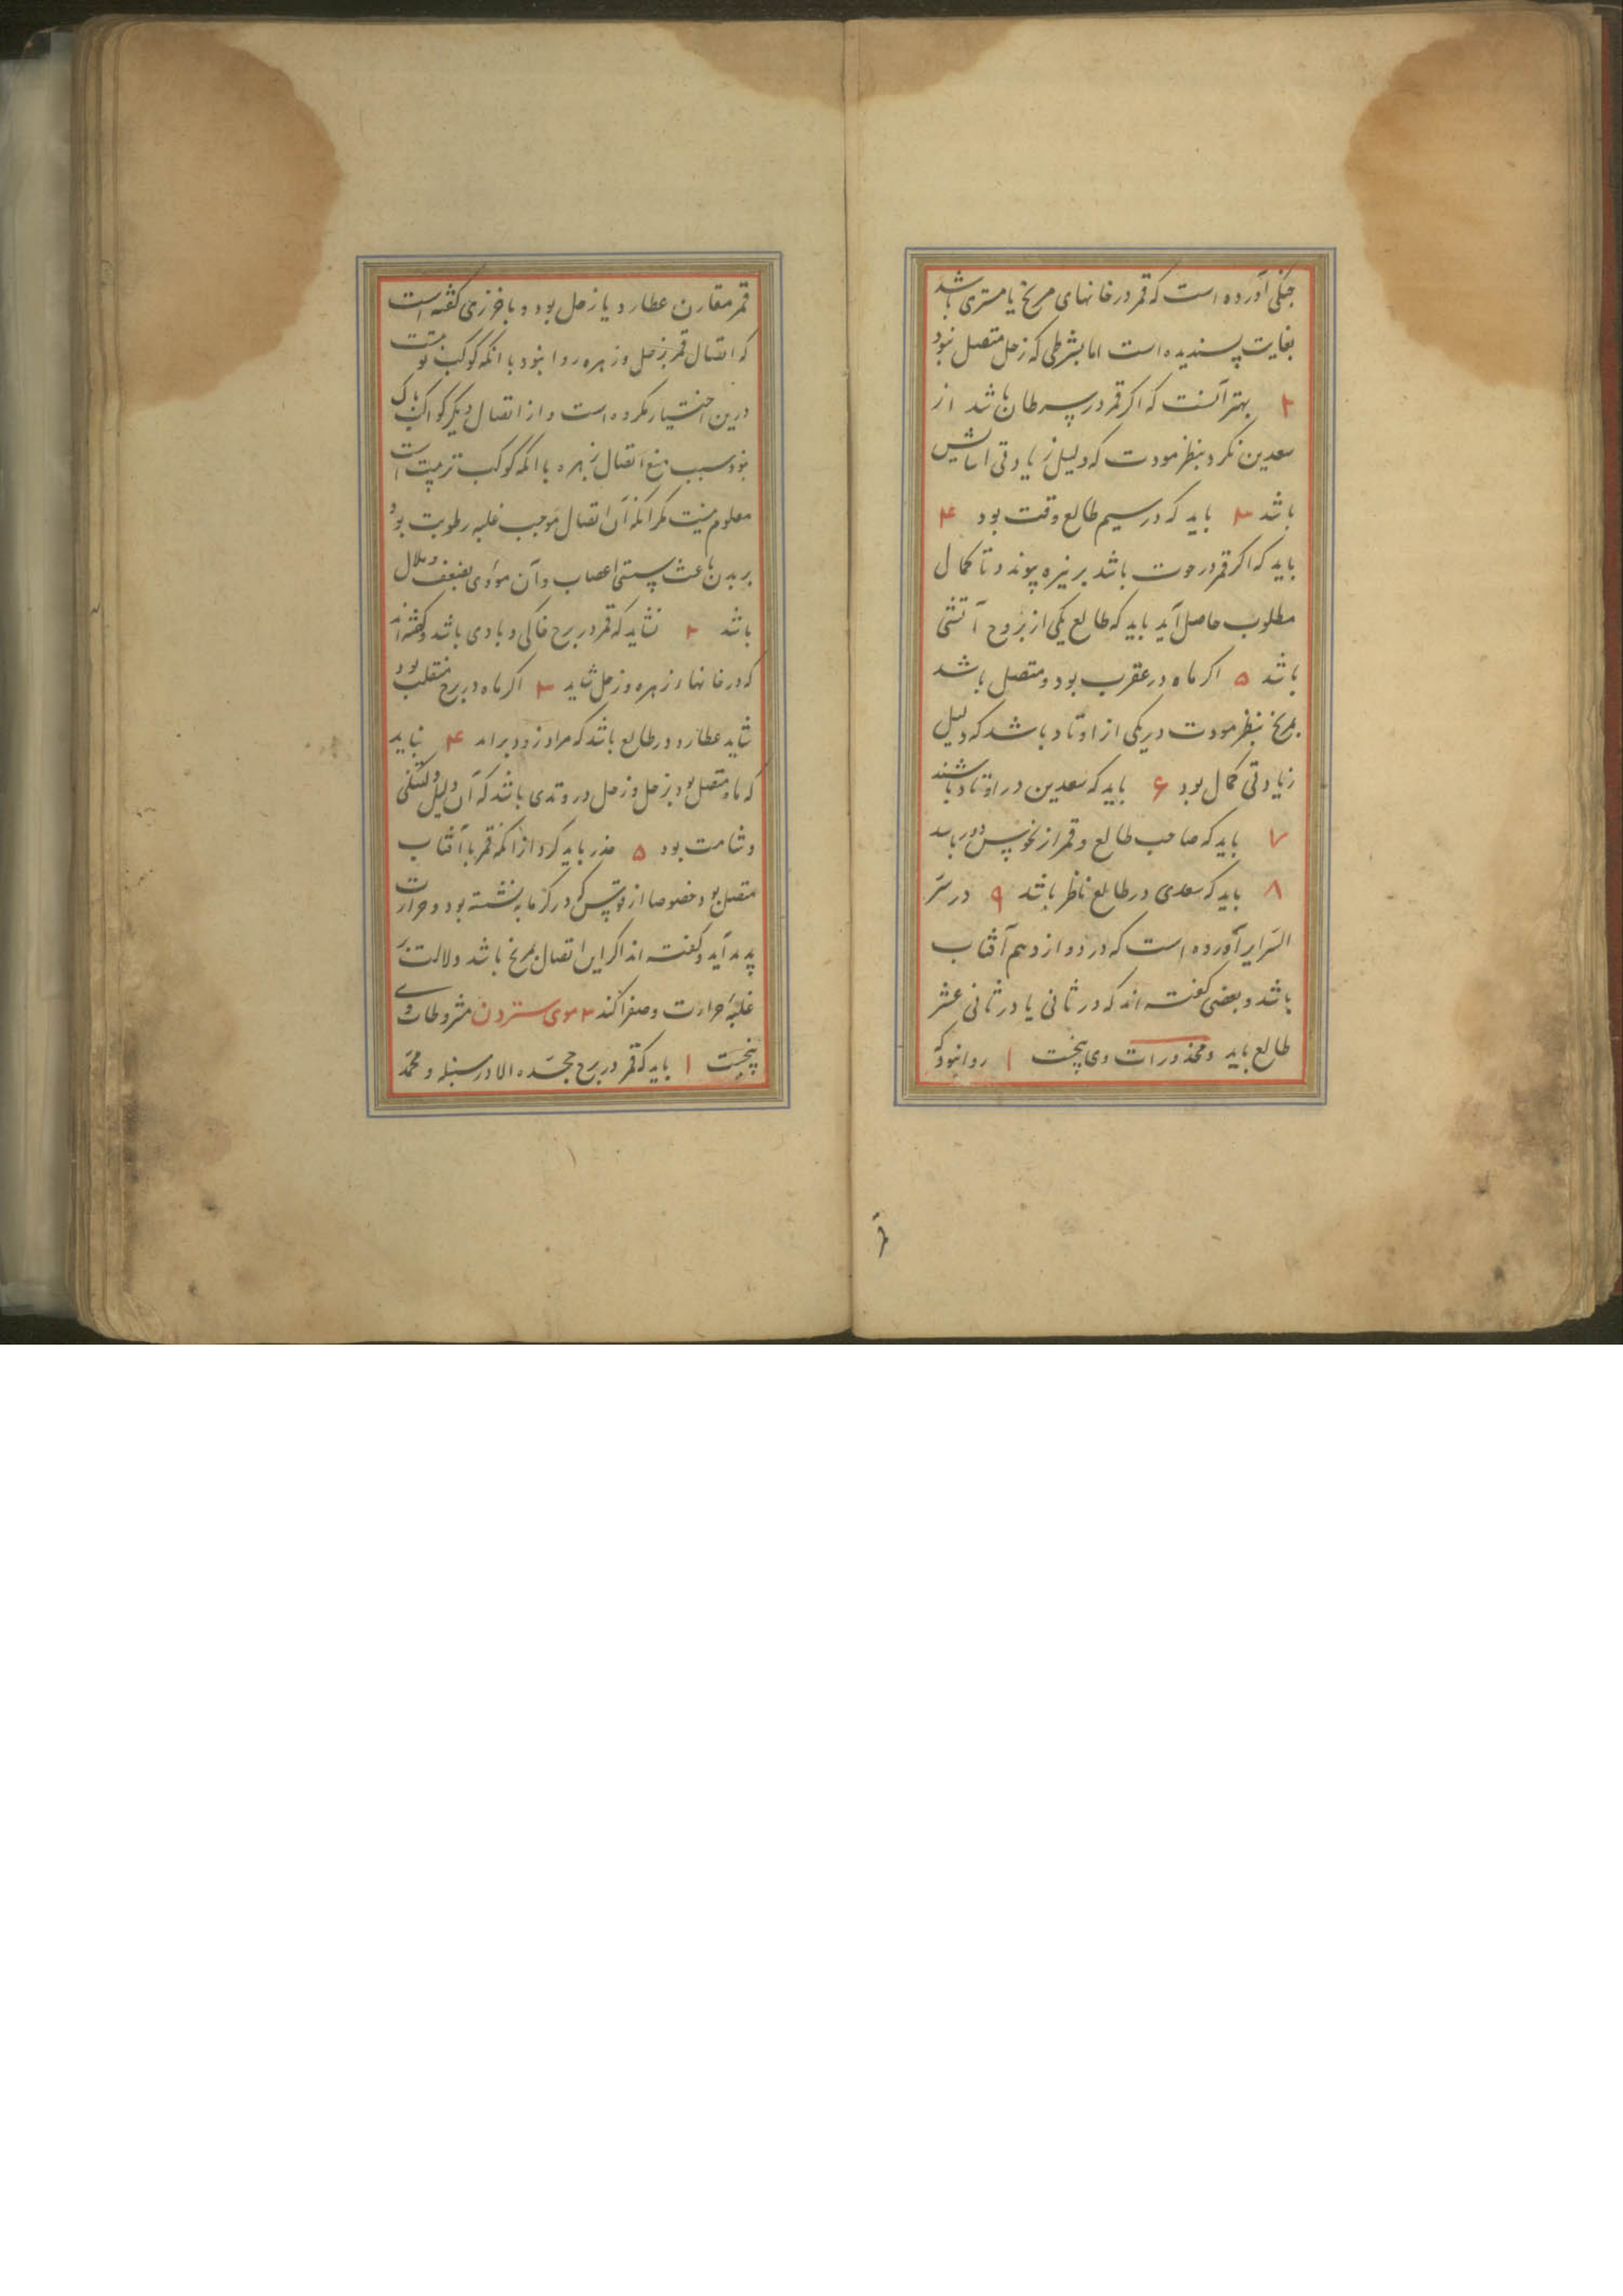 جنکی آورده است که قمر در خانهای مریخ یا مشتری باشد
بغایت پسندیده است اما بشرطی که زحل متصل نبود
۲ بهتر آنست که اکر قمر در سرطان باشد از
سعدین نکرد بنظر مودت که دلیل زیادتی آسایش
باشد ۳ باید که در سیم طالع وقت بود ۴
باید که اکر قمر در حوت باشد بزهره پیوندد تا کمال
مطلوب حاصل آید باید که طالع یکی از بروج آتشی
باشد ۵ اکر ماه در عقرب بود و متصل باشد
بمریخ بنظر مودت در یکی از اوتاد باشد که دلیل
زیادتی کمال بود ۶ باید که سعدین در اوتاد باشند
۷ باید که صاحب طالع و قمر از نحوس دور باشد
۸ باید که سعدی در طالع ناظر باشد ۹ در سرّ
السرایر آورده است که در دوازدهم آفتاب
باشد و بعضی کفته اند که در ثانی یا در ثانی عشر
طالع باید و محذورات وی پنجست ۱ روا نبود که
قمر مقارن عطارد یا زحل بود و باخرزی کفته است
که اتصال قمر بزحل و زهره روا نبود با انکه کوکب
درین اختیار نکرده است و از اتصال دیکر کواکب باک
نبود سبب منع اتصال زهره با انکه کوکب است
معلوم نیست مکر آنکه آن اتصال موجب غلبه رطوبت بود
بر بدن باعث سستی اعصاب و آن مؤدی بضعف و ملال
باشد ۲ نشاید که قمر در برج خاکی و بادی باشد و کفته اند
که در خانهاء زهره و زحل شاید ۳ اکر ماه در برج منقلب بود
شاید عطارد در طالع باشد که مراد زود براید ۴ نباید
که ماه متصل بود بزحل و زحل در وتدی باشد که آن دلیل دلتنکی
و شامت بود ۵ حذر باید کرد از انکه قمر با آفتاب
متصل بود خصوصا از قوس که در کرمابه نشسته بود و حرارت
پدید آید و کفته اند اکر این اتصال بمریخ باشد دلالت بر
غلبۀ حرارت و صفرا کند ۳ موی ستردن مشروطات وی
پنجست ۱ باید که قمر در برج مجسّده الا در سنبله و